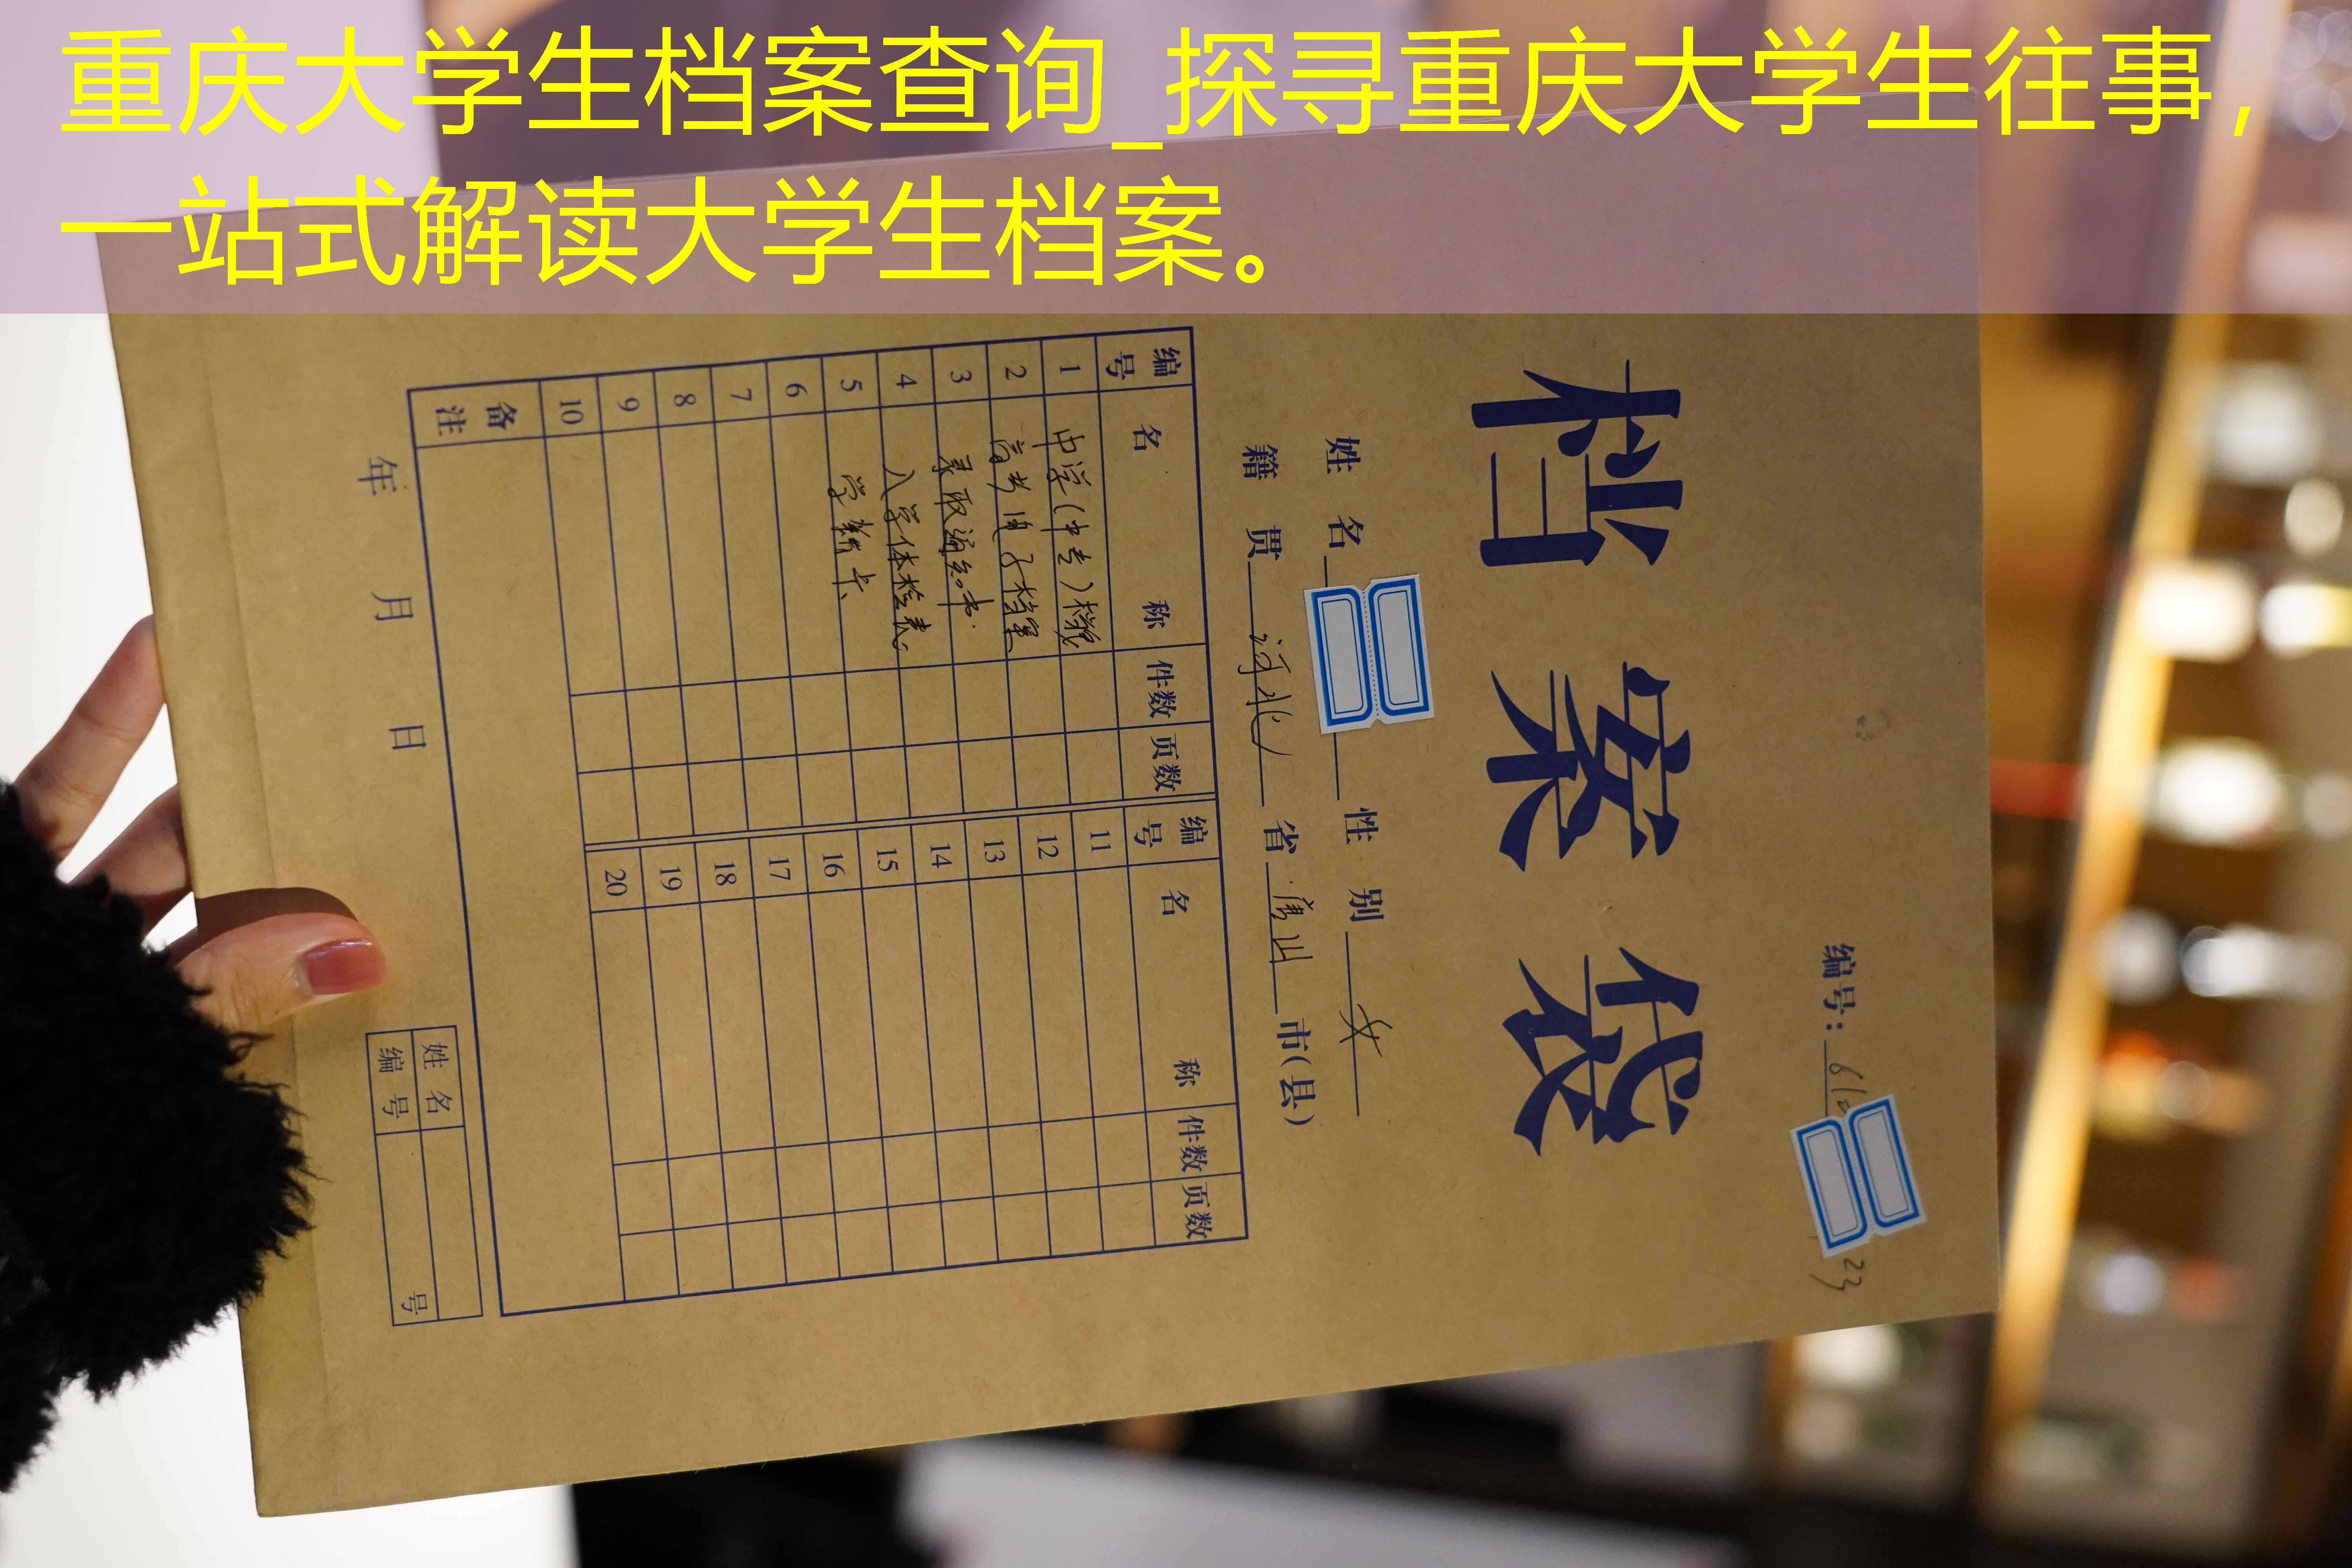 重庆大学生档案查询_探寻重庆大学生往事，
一站式解读大学生档案。
编号：
23
档案袋
姓名 性别 女
籍贯 河北 省 唐山 市(县)
编号 名称 件数 页数 编号 名称 件数 页数
1 中学(中专)档案 11
2 高考电子档案 12
3 录取通知书 13
4 入学体检表 14
5 学籍卡 15
6 16
7 17
8 18
9 19
10 20
备注
年 月 日
姓名
编号 号